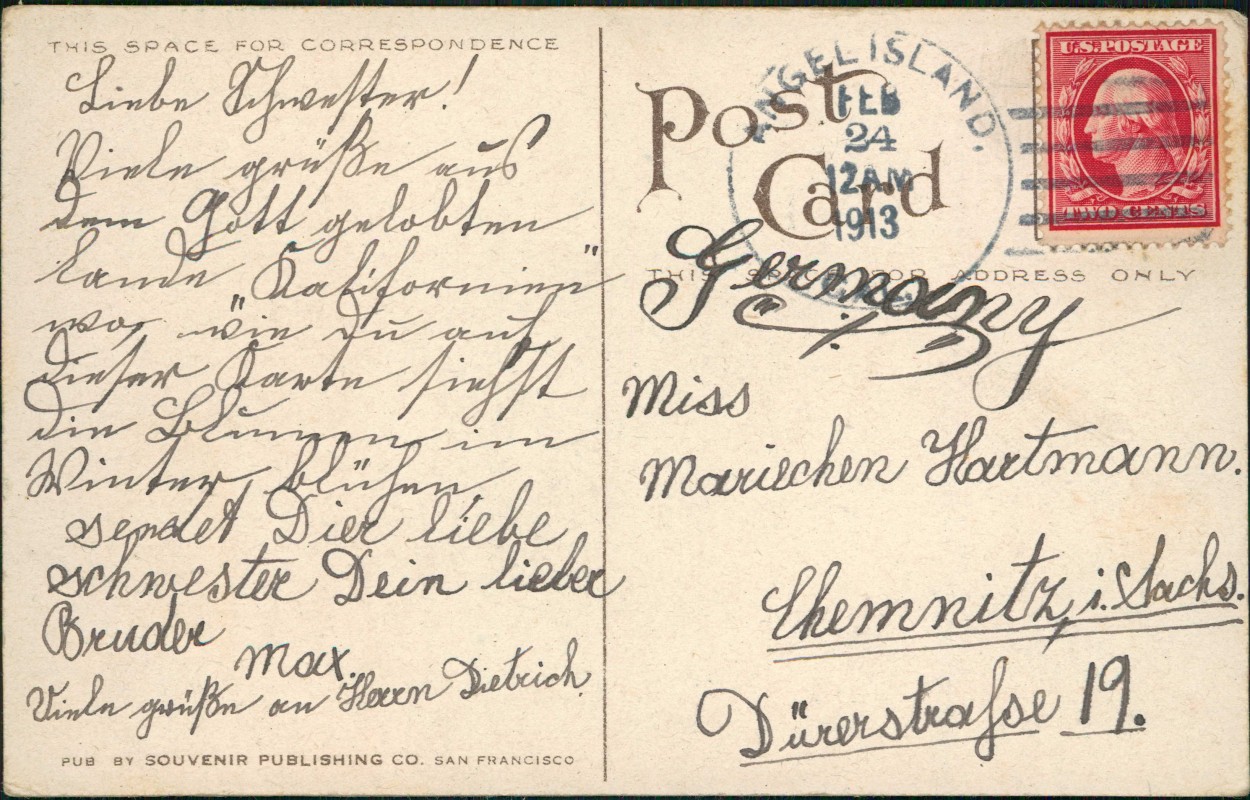 THIS SPACE FOR CORRESPONDENCE
Liebe Schwester!
Viele grüße aus
dem Gott gelobten
Lande „Kalifornien”
wo, wie Du auf
dieser Karte siehst
die Blumen im
Winter, blühen
sendet Dier liebe
schwester Dein lieber
Bruder
Max.
Viele grüße an Herrn Dietrich.
PUB BY SOUVENIR PUBLISHING CO. SAN FRANCISCO
Post
Card
ANGEL ISLAND.
FEB
24
12AM
1913
U.S. POSTAGE
TWO CENTS
THIS SPACE FOR ADDRESS ONLY
Germany
Miss
Mariechen Hartmann.
Chemnitz, i. Sachs.
Dürerstrafse 19.